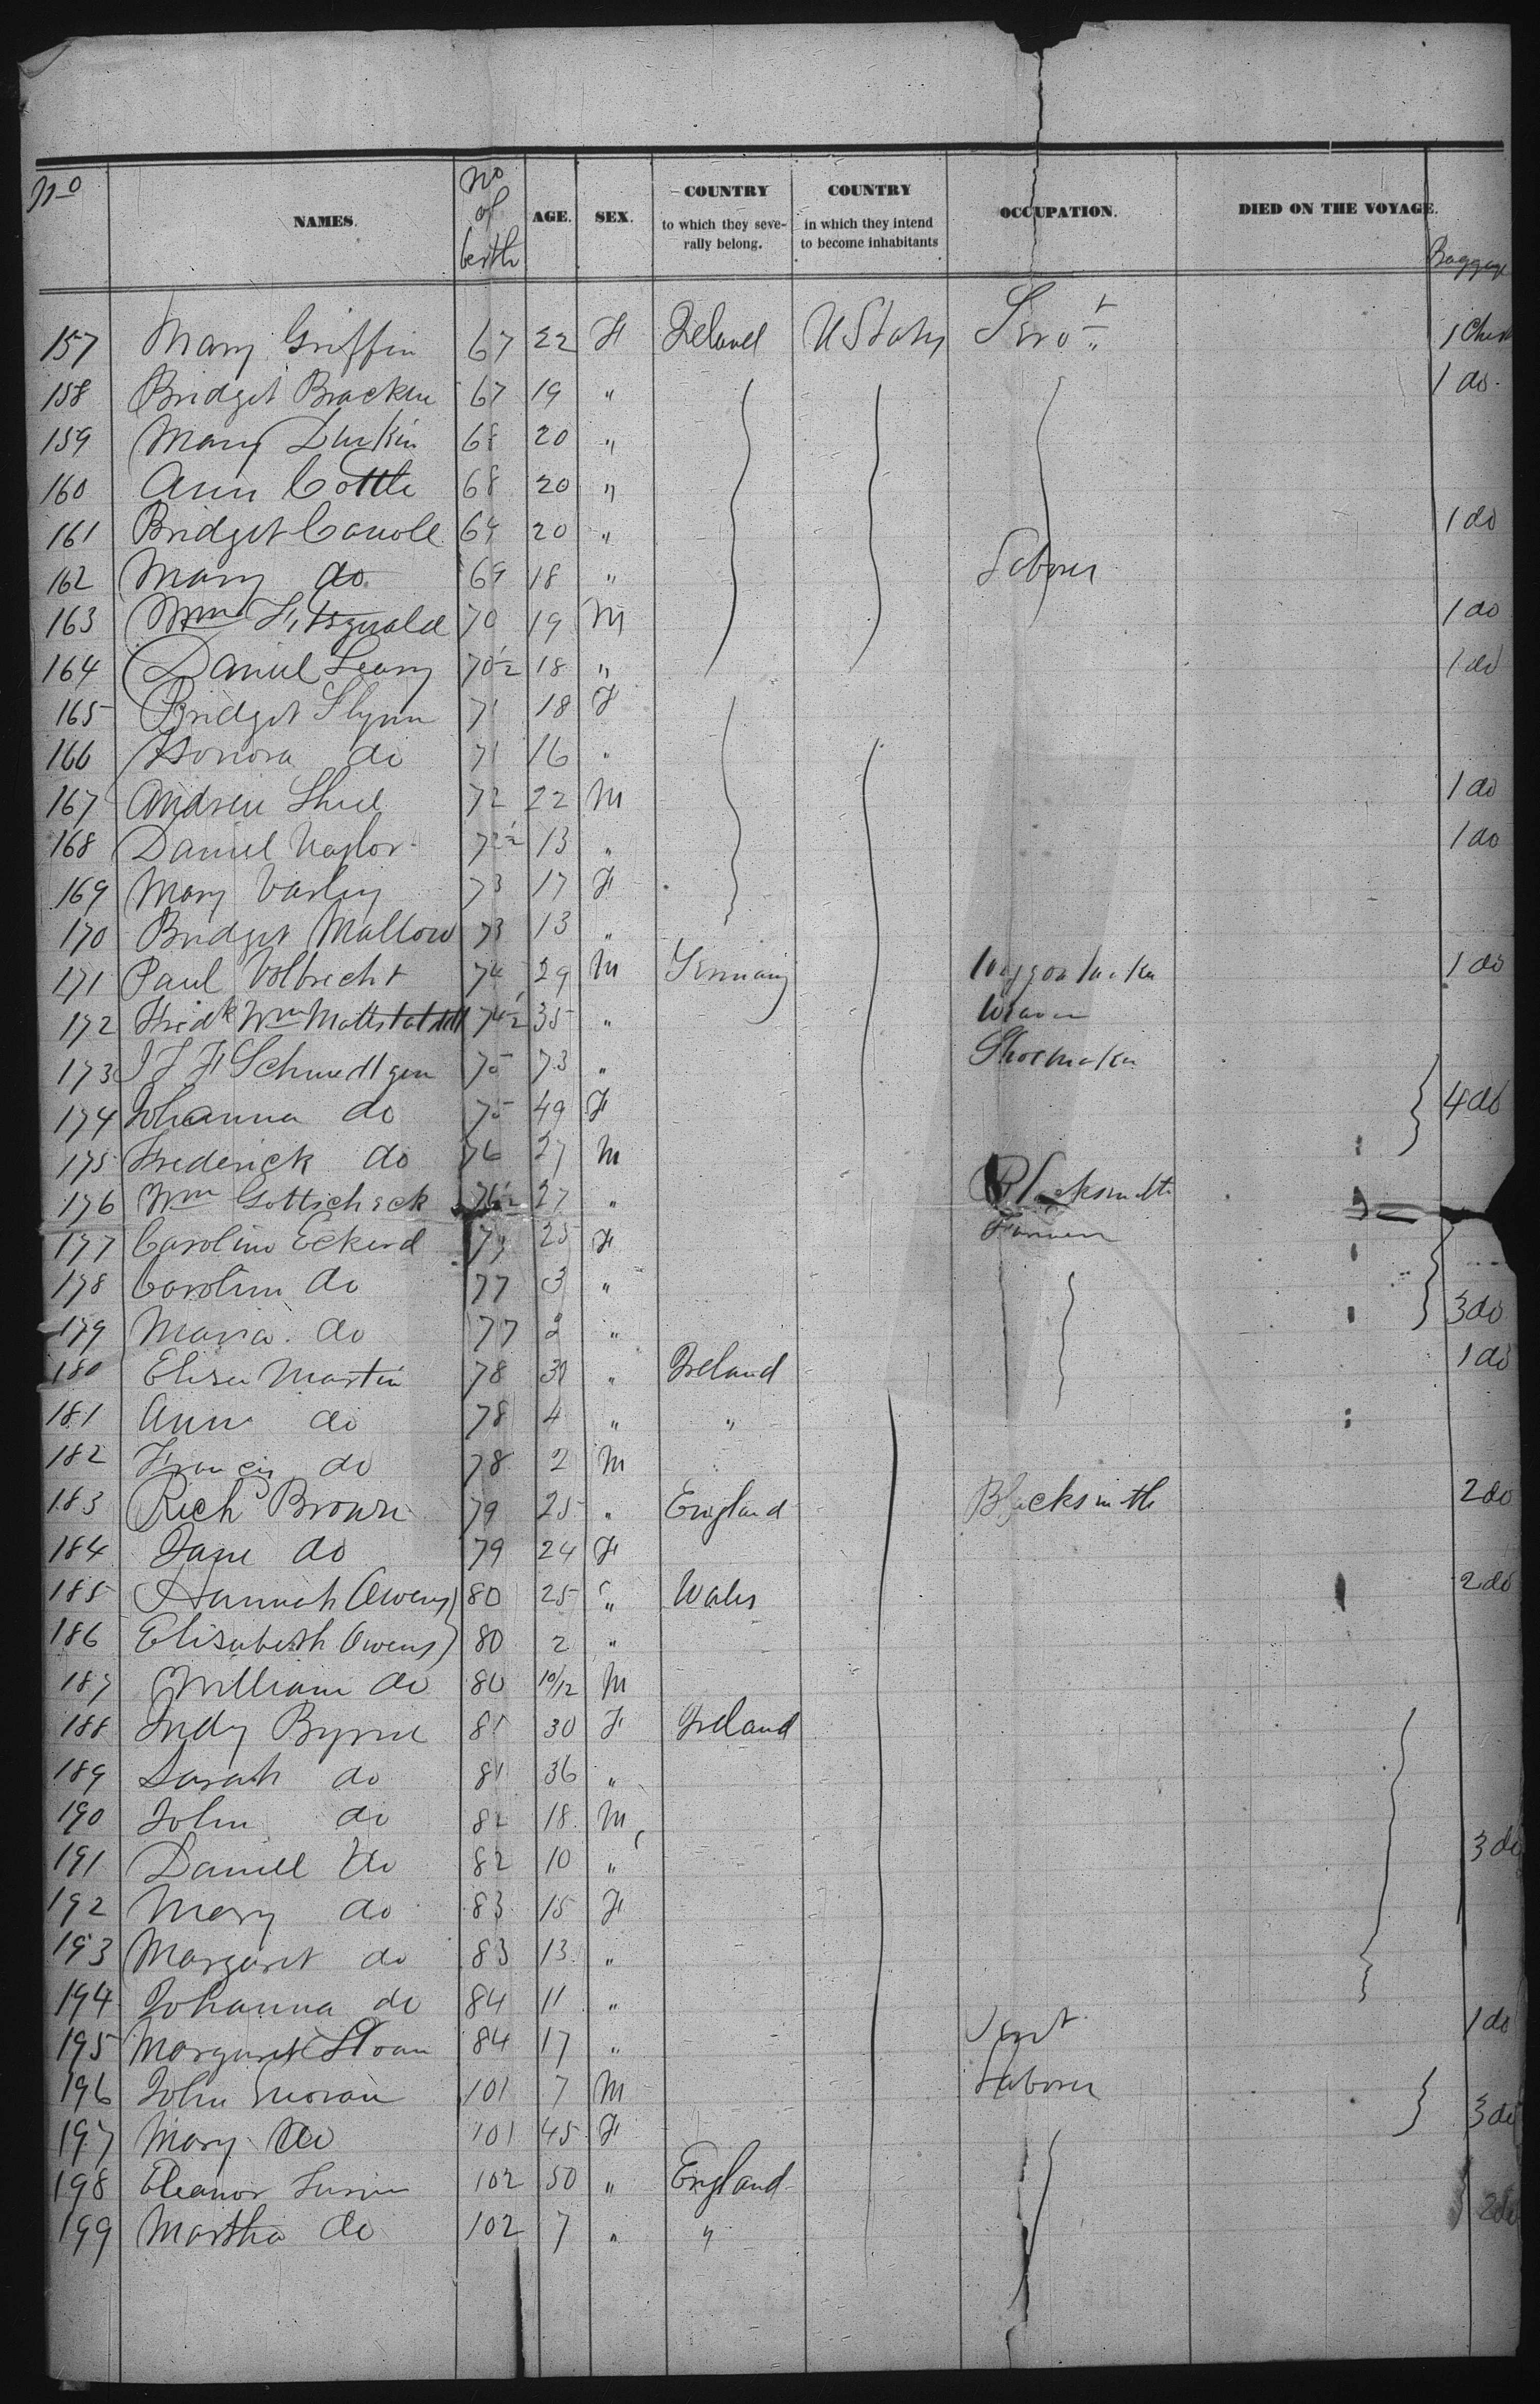 No NAMES. No of berth AGE. SEX. COUNTRY to which they severally belong. COUNTRY in which they intend to become inhabitants OCCUPATION. DIED ON THE VOYAGE. Baggage
157 Mary Griffin 67 22 F Ireland U States Servt 1 Chest
158 Bridget Bracken 67 19 " 1 do
159 Mary Durkin 68 20 "
160 Ann Cottle 68 20 "
161 Bridget Carroll 69 20 " 1 do
162 Mary do 69 18 " Laborer
163 Wm Fitzgerald 70 19 M 1 do
164 Daniel Leary 70½ 18 " 1 do
165 Bridget Flynn 71 18 F
166 Honora do 71 16 "
167 Andrew Shiel 72 22 M 1 do
168 Daniel Naylor 72½ 13 " 1 do
169 Mary Varley 73 17 F
170 Bridget Mallow 73 13 "
171 Paul Volbrecht 74 29 M Germany 1 do
172 Fredk Wm 74½ 35 " Weaver
173 75 73 " Shoemaker
174 Johanna do 75 49 F 4 do
175 Frederick do 76 27 M
176 Wm Gottscheck 76½ 27 " Blacksmith
177 Caroline Eckerd 77 25 F Farmer
178 Caroline do 77 3 "
179 Maria do 77 2 " 3 do
180 Elisa Martin 78 " Ireland 1 do
181 Ann do 78 4 " "
182 Francis do 78 2 M
183 Richd Brown 79 25 " England Blacksmith 2 do
184 Jane do 79 24 F
185 Hannah Owens 80 25 " Wales 2 do
186 Elisabeth Owens 80 2 "
187 William do 80 10/12 M
188 Judy Byrne 81 30 F Ireland
189 Sarah do 81 36 "
190 John do 82 18 M
191 Daniel do 82 10 " 3 do
192 Mary do 83 15 F
193 Margaret do 83 13 "
194 Johanna do 84 11 "
195 Margaret Sloan 84 17 " Servt 1 do
196 John Moran 101 7 M Laborer
197 Mary do 101 45 F 3 do
198 Eleanor 102 50 " England
199 Martha do 102 7 " " 2 do